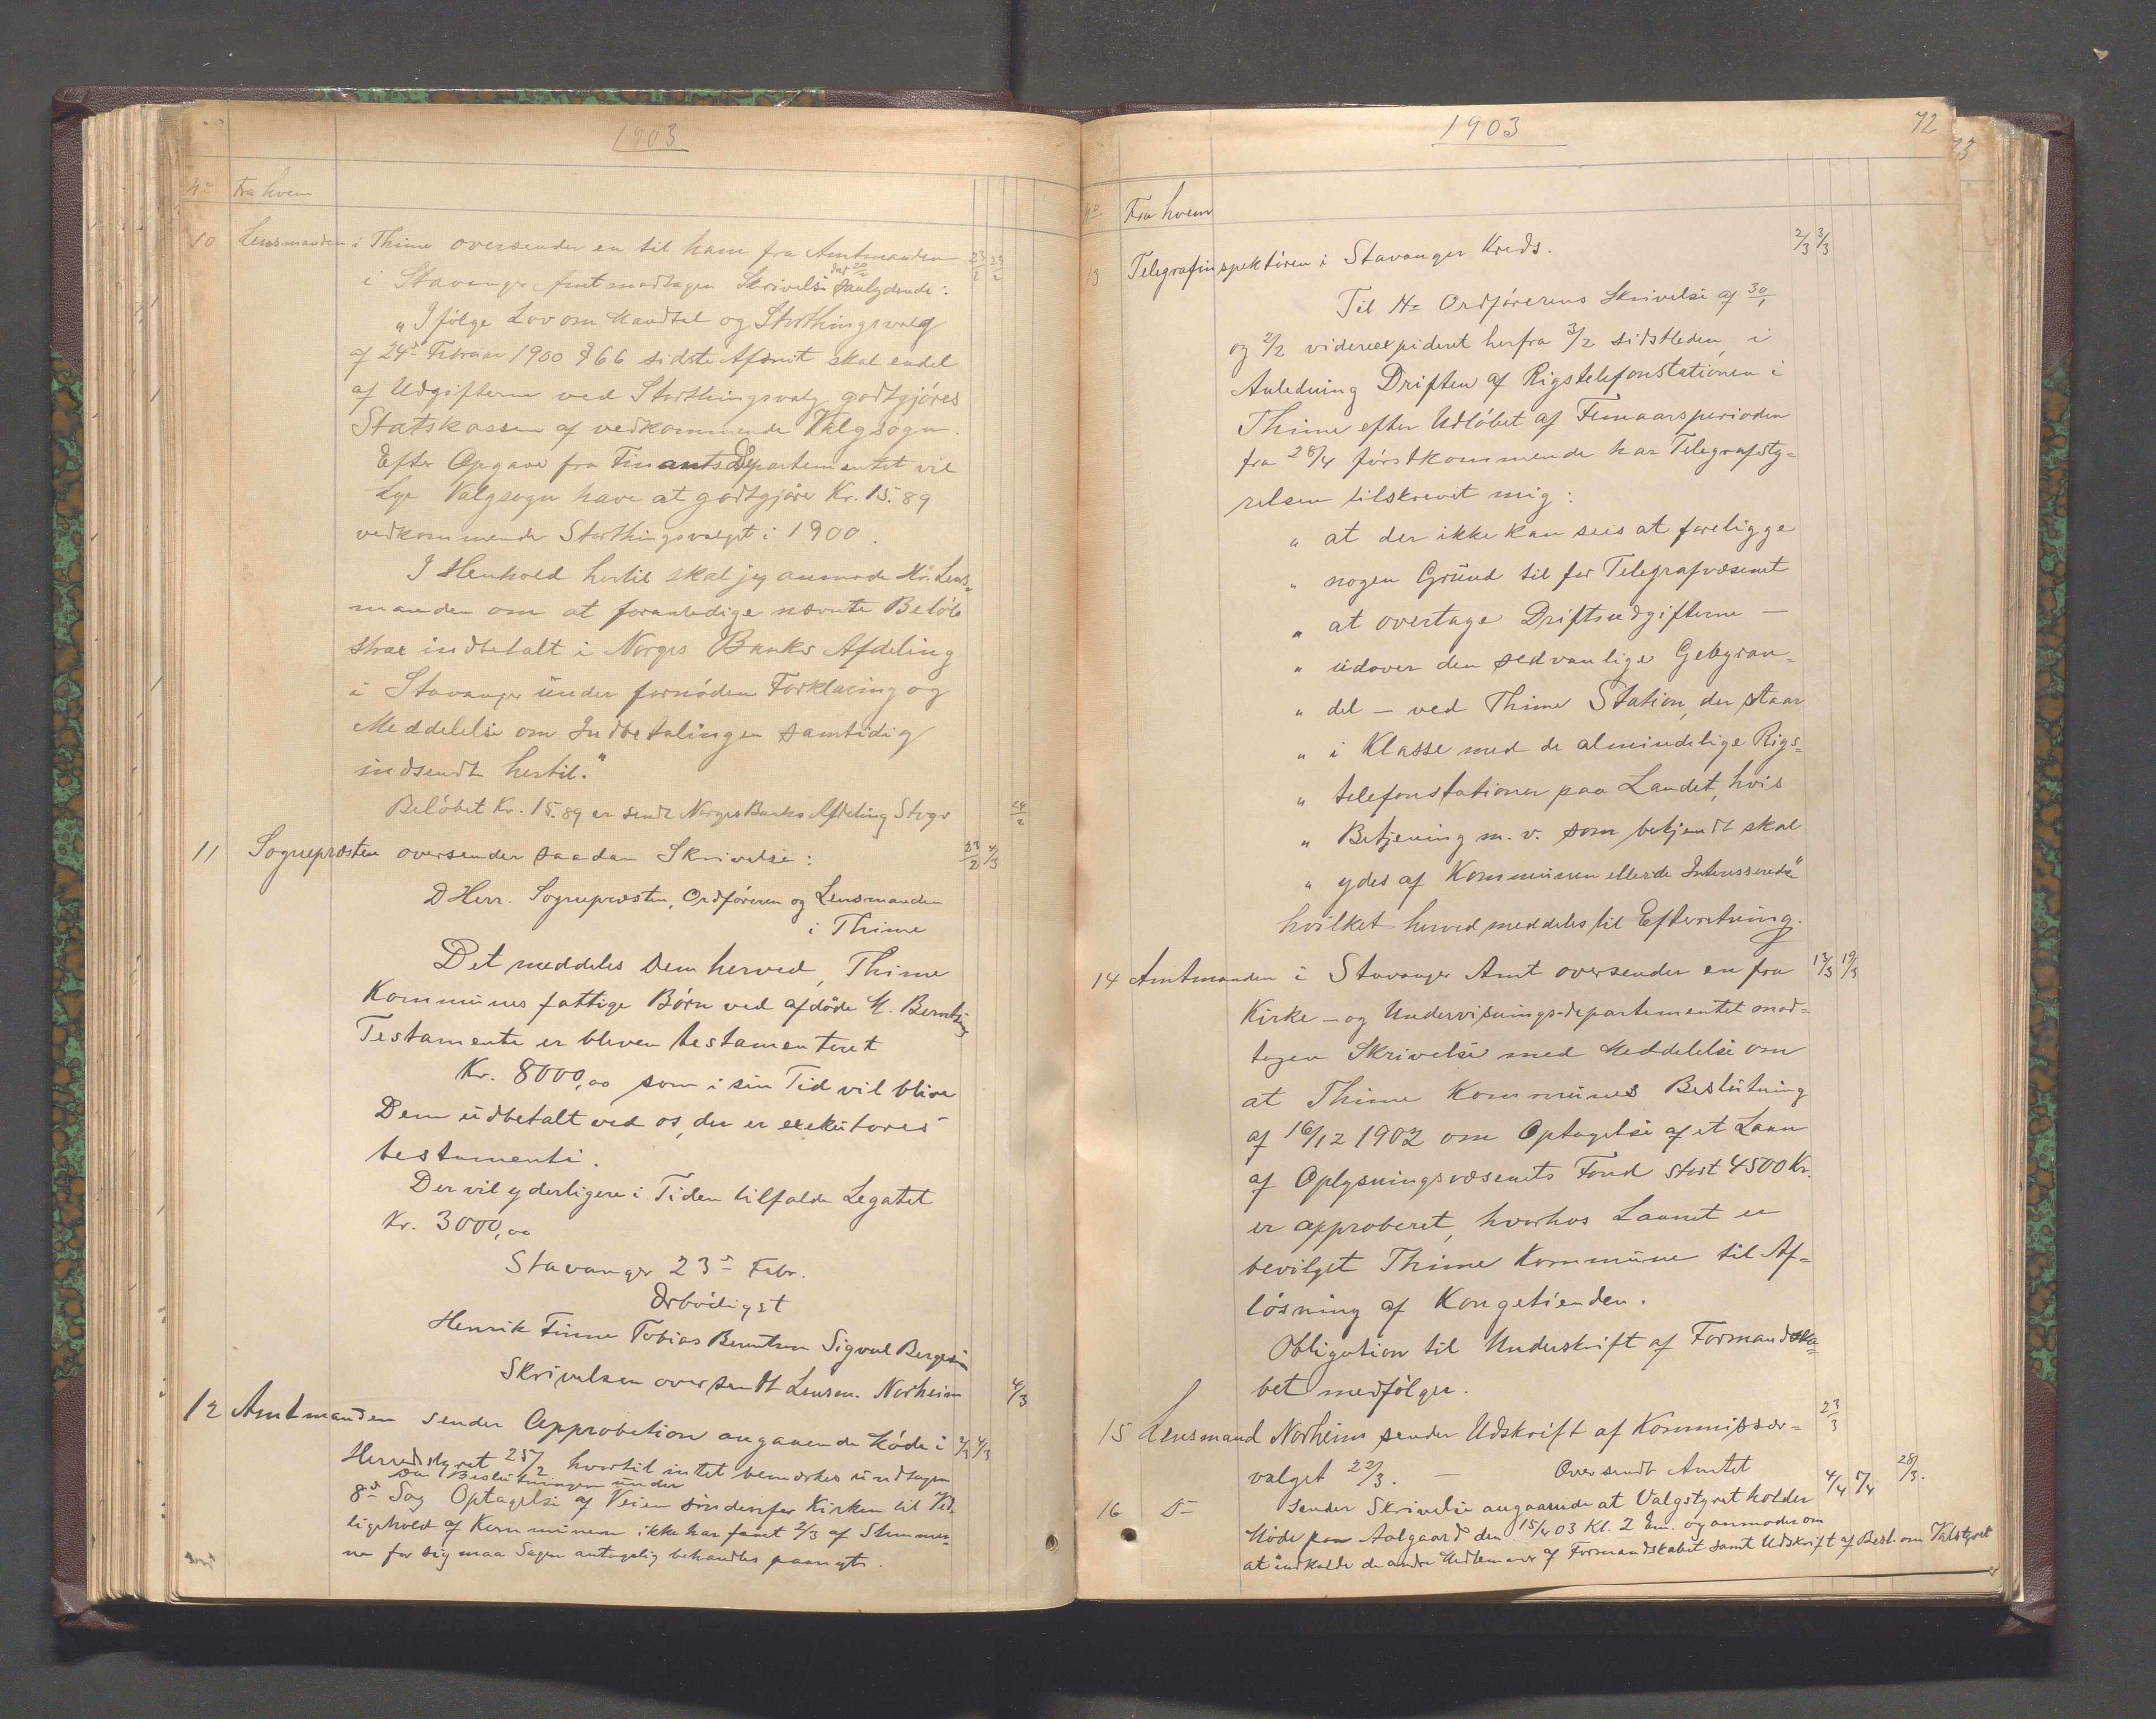 1903
No Fra hvem
10 Lensmanden i Thime oversender en til ham fra Amtmanden 23/2 23/2
i Stavanger Amt modtagen Skrivelse dat 20/2 saalydende:
"Ifølge Lov om Mandtal og Storthingsvalg
af 24de Februar 1900 § 66 sidste Afsnit skal endel
af Udgifterne ved Storthingsvalg godtgjöres
Statskassen af vedkommende Valgsogn.
Efter Opgave fra Finantsdepartementet vil
Lye Valgsogn have at godtgjöre Kr. 15.89
vedkommende Storthingsvalget i 1900.
I Henhold hertil skal jeg anmode Hr. Lens-
manden om at foranledige nævnte Beløb
strax indbetalt i Norges Banks Afdeling
i Stavanger under fornöden Forklaring og
Meddelelse om Indbetalingen samtidig
indsendt hertil."
Belöbet Kr. 15.89 er sendt Norges Banks Afdeling Stvgr 24/2
11 Sognepræsten oversender saadan Skrivelse: 23/2 4/3
D Herr. Sognepræsten, Ordföreren og Lensmanden
i Thime
Det meddeles Dem herved, Thime
Kommunes fattige Börn ved afdöde M. Berntsens
Testamente er bleven testamenteret
Kr. 8000,00 som i sin Tid vil blive
Dem udbetalt ved os, der er exekutores
testamenti.
Der vil yderligere i Tiden tilfalde Legatet
Kr. 3000,00
Stavanger 23de Febr.
Ærbödigst
Henrik Finne Tobias Berntsen Sigval Bergesen
Skrivelsen oversendt Lensm. Norheim 4/3
12 Amtmanden sender Approbation angaaende Möde i 2/3 4/3
Herredstyret 25/2 hvortil intet bemærkes undtagen
da Beslutningen under
8de Sag Optagelse af Veien söndenfor Kirken til Ved-
ligehold af Kommunen ikke har faaet 2/3 af Stemmer-
ne for sig maa Sagen antagelig behandles paanyt.
1903 72
No Fra hvem
13 Telegrafinspektören i Stavanger Kreds. 2/3 3/3
Til Hr Ordförerens Skrivelse af 30/1
og 2/2 videreexpideret herfra 3/2 sidstleden, i
Anledning Driften af Rigstelefonstationen i
Thime efter Udlöbet af Femaarsperioden
fra 28/4 förstkommende har Telegrafsty=
relsen tilskrevet mig:
" at der ikke kan sees at foreligge
" nogen Grund til for Telegrafvæsenet
" at overtage Driftsudgifterne —
" udover den sedvanlige Gebyran=
" del — ved Thime Station, der staar
" i Klasse med de almindelige Rigs=
" telefonstationer paa Landet, hvis
" Betjening m. v. som bekjendt skal
" ydes af Kommunen eller de Interesserede"
hvilket herved meddeles til Efterretning.
14 Amtmanden i Stavanger Amt oversender en fra 13/3 19/3
Kirke — og Undervisnings-departementet mod=
tagen Skrivelse med Meddelelse om
at Thime Kommunes Beslutning
af 16/12 1902 om Optagelse af et Laan
af Oplysningsvæsenets Fond stort 4500 Kr.
er approberet, hvorhos Laanet er
bevilget Thime Kommune til Af=
lösning af Kongetienden.
Obligation til Underskrift af Formandska=
bet medfölger.
15 Lensmand Norheim sender Udskrift af Kommissær= 23/3
valget 22/3. — Oversendt Amtet 28/3.
16 Do sender Skrivelse angaaende at Valgstyret holder 4/4 5/4
Möde paa Aalgaard den 15/4 03 Kl. 2 Em. og anmoder om
at indkalde de andre Medlemmer af Formandskabet samt Udskrift af Besl. om Valstyret